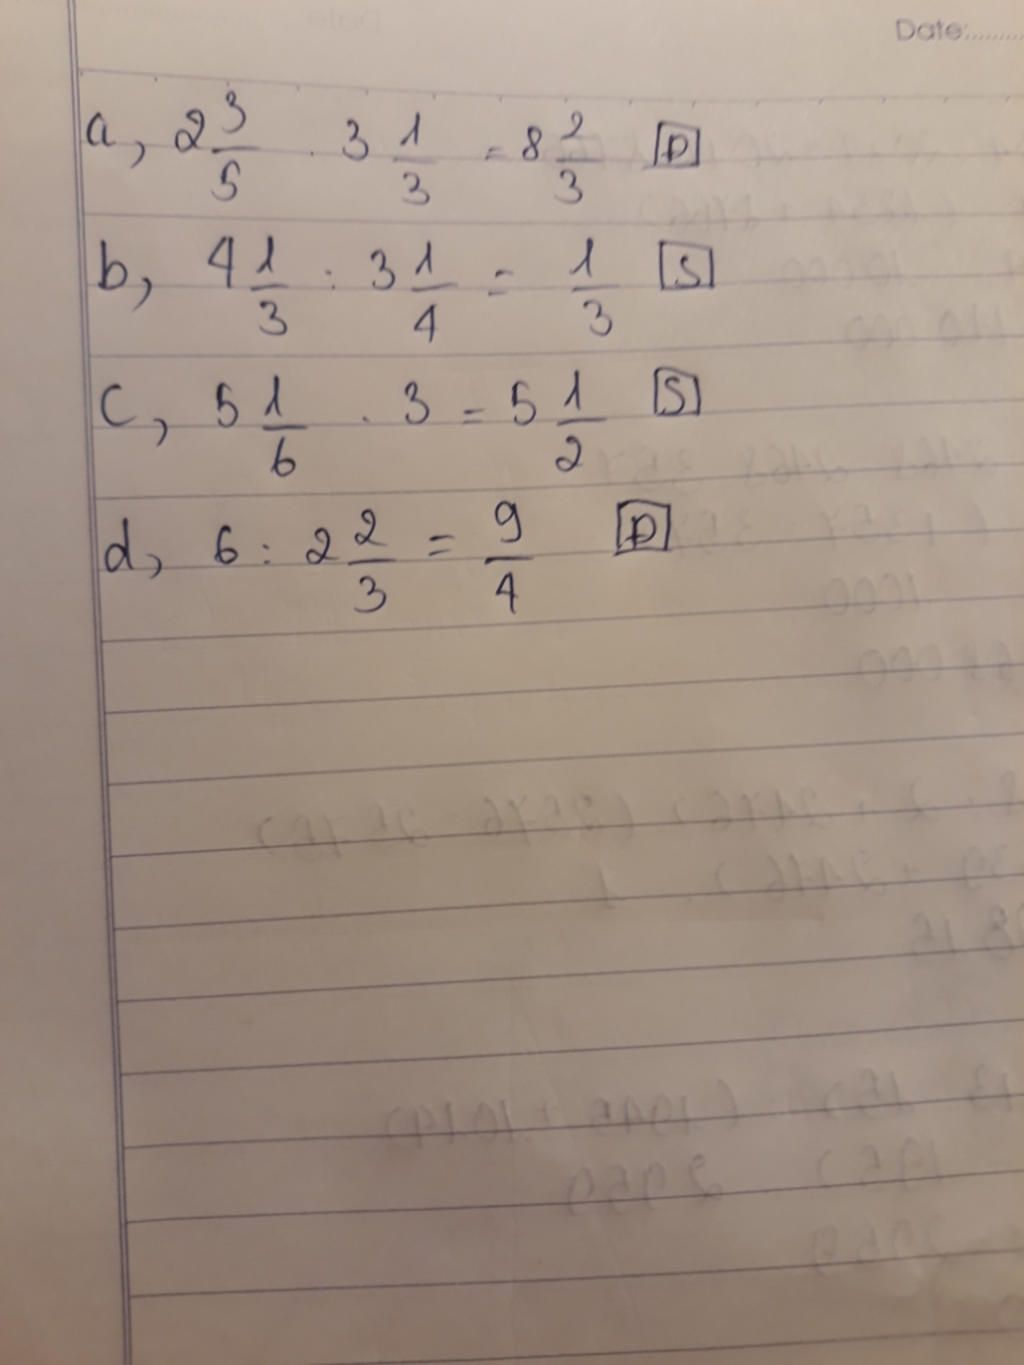 Date:.........
a, 2 3/5 . 3 1/3 = 8 2/3 Đ
b, 4 1/3 : 3 1/4 = 1/3 S
c, 5 1/6 . 3 = 5 1/2 S
d, 6 : 2 2/3 = 9/4 Đ